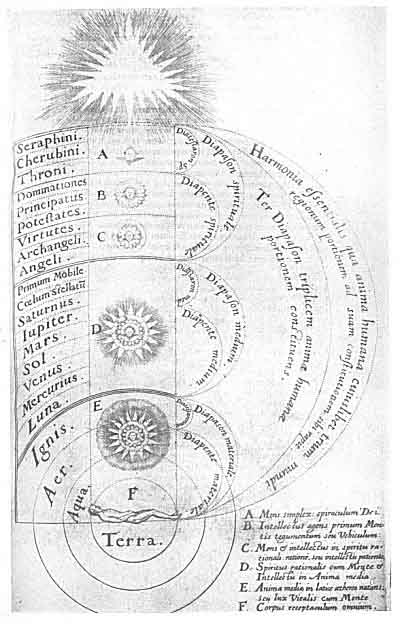 Seraphini.
Cherubini.
Throni.
Dominationes
Principatus
Potestates.
Virtutes.
Archangeli.
Angeli.
Primum Mobile
Cœlum Stellatū
Saturnus.
Iupiter.
Mars.
Sol.
Venus.
Mercurius.
Luna.
Ignis.
Aer.
Aqua.
Terra.
A
B
C
D
E
F
Diapason spirituale
Diapente spirituale
Diapason medium.
Diapente medium
Diapason materiale
Diapente materiale
Harmonia essentialis qua anima humana cuiuslibet trium
regionum portionem ad suam
mundi
Ter Diapason triplicem animæ humanæ
portionem constituens.
A Mens simplex: spiraculum Dei.
B. Intellectus agens primum Men-
tis tegumentum seu Vehiculum.
C. Mens & intellectus in spiritu ra-
tionali
D. Spiritus rationalis cum Mente &
Intellectu in Anima media.
E. Anima media in
seu lux Vitalis cum Mente
F. Corpus receptaculum omnium.